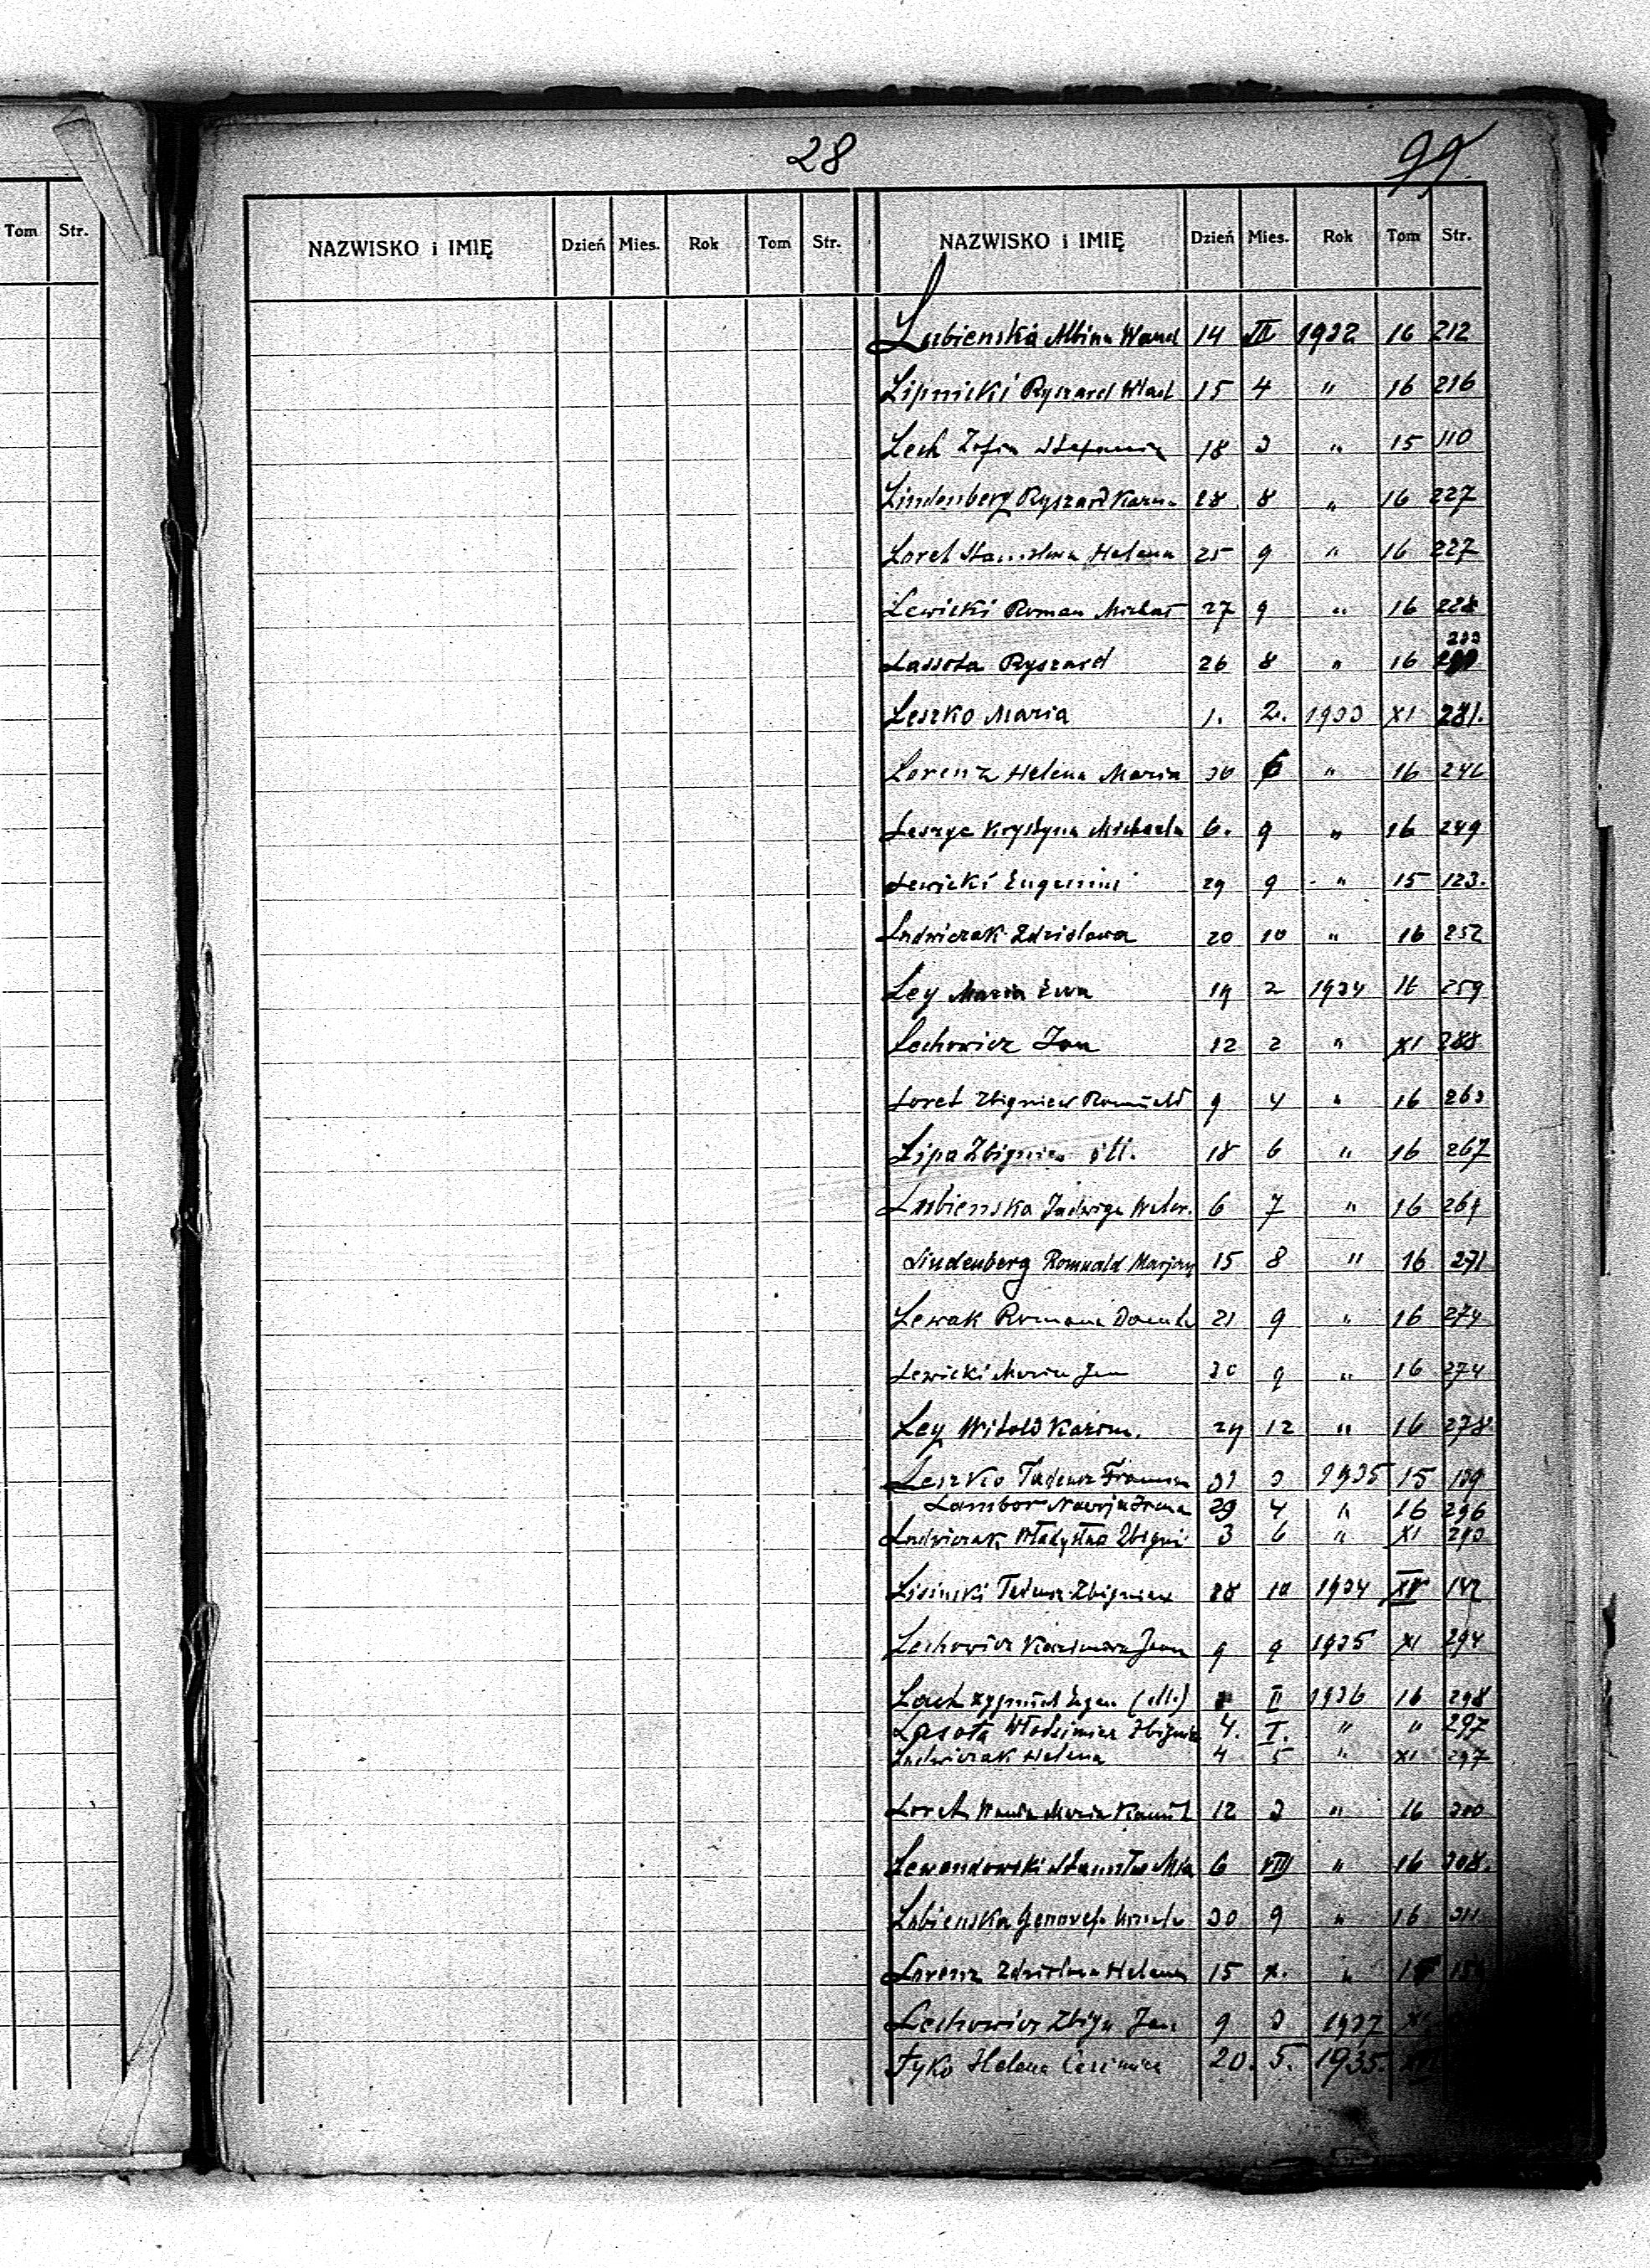 28
99
Tom Str.
NAZWISKO i IMIĘ Dzień Mies. Rok Tom Str. NAZWISKO i IMIĘ Dzień Mies. Rok Tom Str.
Lubienska Albina Wand 14 III 1932 16 212
Lipnicki Ryszard Wład 15 4 " 16 216
Lech Zofia Stefania 18 3 " 15 110
Lindenberg Ryszard Kazm 28 8 " 16 227
Loret Stanisława Helena 25 9 " 16 227
Lewicki Roman Michał 27 9 " 16 228
233
Lassota Ryszard 26 8 " 16
Leszko Maria 1. 2. 1933 XI 281.
Lorenz Helena Maria 30 6 " 16 246
Leszyc Krystyna Michaela 6. 9 " 16 249
Lewicki Eugeniusz 29 9 " 15 123.
Ludwiczak Zdzisława 20 10 " 16 252
Ley Maria Ewa 19 2 1934 16 259
Lechowicz Jan 12 2 " XI 288
Loret Zbigniew Romuald 9 4 " 16 263
Lipa Zbigniew ill. 18 6 " 16 267
Lubienska Jadwiga Waler. 6 7 " 16 269
Lindenberg Romuald Marjan 15 8 " 16 271
Lewak Romana Danuta 21 9 " 16 274
Lewicki Marian Jan 30 9 " 16 274
Ley Witold Kazim. 24 12 " 16 278.
Leszko Tadeusz Francisz 31 3 1935 15 139
Lambor Maria Irena 29 4 " 16 296
Ludwiczak Władysław Zbigni 3 6 " XI 293
Lisinski Tadeusz Zbigniew 28 10 1934 XV 142
Lechowicz Kazimierz Jan 9 9 1935 XI 294
Lach Zygmunt Eugen. (ill.) II 1936 16 298
Lasota Włodzimierz Zbigniew 4. I. " " 297
Ludwiczak Helena 4 5 " XI 297
Loret Wanda Maria Kamila 12 3 " 16 300
Lewandowski Stanisław 6 VIII " 16 308.
Lubienska Genowefa 30 9 " 16 311
Lorenz Zdzisława Helena 15 X. " 15
Lechowicz Zbign Jan 9 3 1937 XI
Łyko Helena 20. 5. 1935.